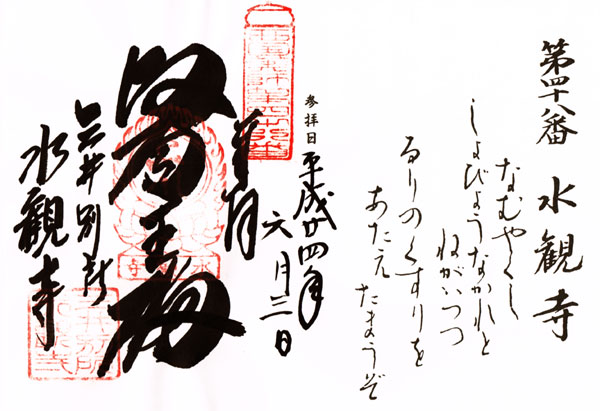 第四十八番 水観寺
なむやくし
しよびようなかれと
ねがいつつ
るりのくすりを
あたえ たまうぞ
参拝日 平成廿四年
六月三日
奉拝
醫王殿
三井別所
水観寺